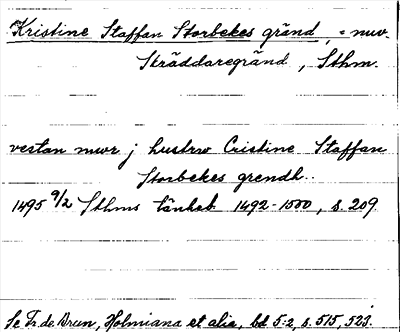 Kristine Staffan Storbekes gränd, = nuv.
Skräddaregränd, Sthm.
vestan mwr j hustrw Cristine Staffan
Storbekes grendh..
1495 9/2 Sthms tänkeb. 1492-1500, s. 209
Se Fr. de Brun, Holmiana et alia, bd 5:2, s. 515, 523.